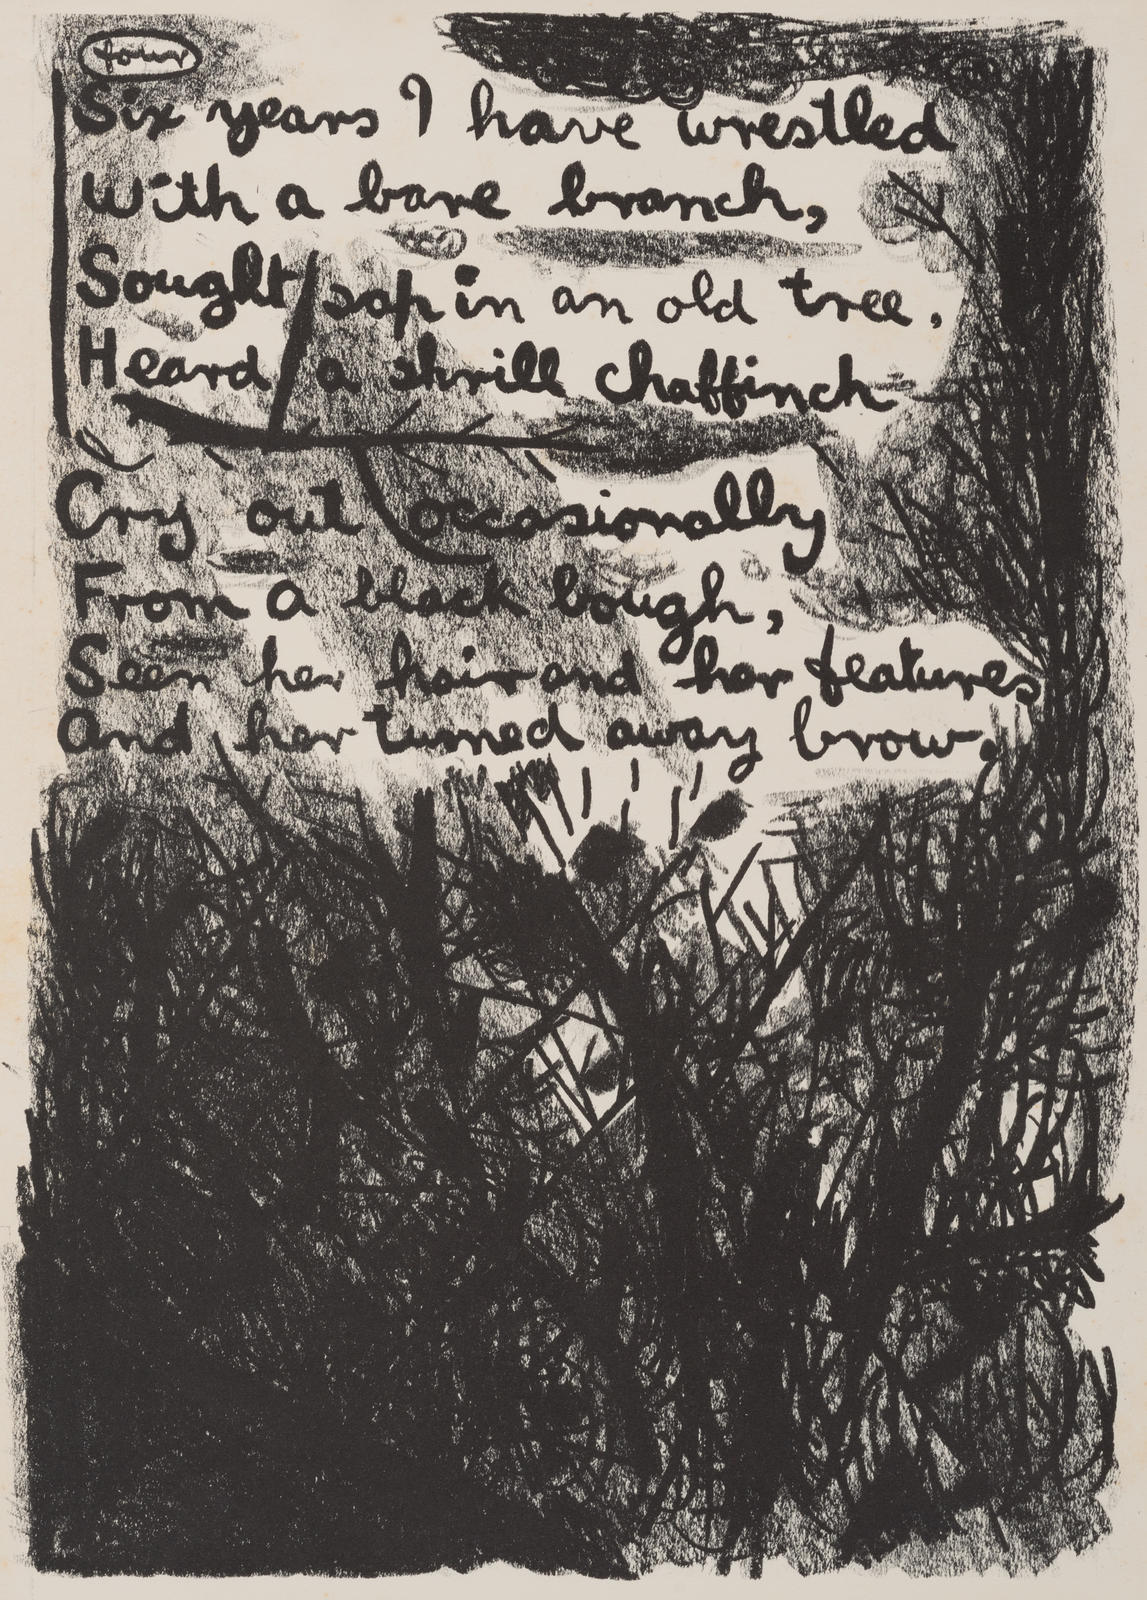 four
Six years I have wrestled
with a bare branch,
Sought sap in an old tree.
Heard a shrill chaffinch
Cry out occasionally
From a black bough,
Seen her hair and her features
And her turned away brow.